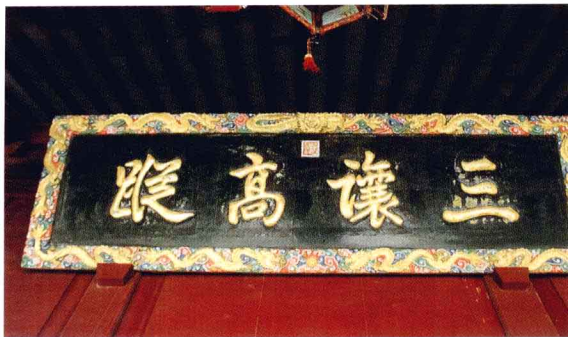 三讓高蹤